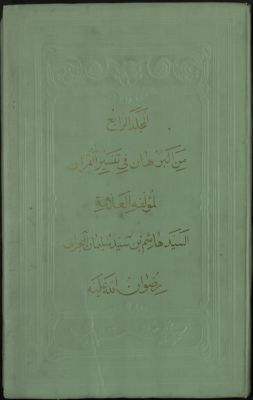 المجلد الرابع
من البرهان في تفسير القرآن
لمؤلفه العلامة
السيد هاشم بن سيد سليمان البحراني
رضوان الله عليه